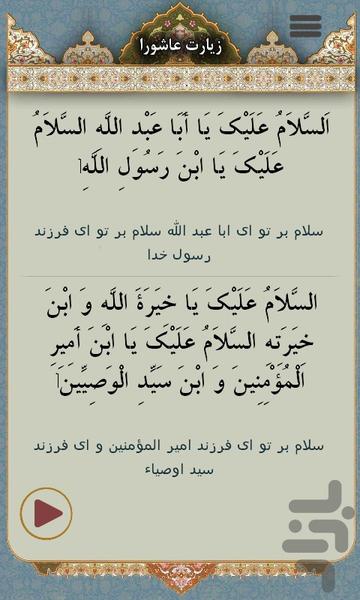 زیارت عاشورا
اَلسَّلاَمُ عَلَیْکَ یَا أَبَا عَبْد اللَّه السَّلاَمُ
عَلَیْکَ یَا ابْنَ رَسُولِ اللَّهِ
سلام بر تو ای ابا عبد الله سلام بر تو ای فرزند
رسول خدا
السَّلاَمُ عَلَیْکَ یَا خیَرَةَ اللَّه وَ ابْنَ
خیَرَتِهِ السَّلاَمُ عَلَیْکَ یَا ابْنَ أَمِیرِ
الْمُؤْمِنِینَ وَ ابْنَ سَیِّدِ الْوَصِیِّینَ
سلام بر تو ای فرزند امیر المؤمنین و ای فرزند
سید اوصیاء
بازار